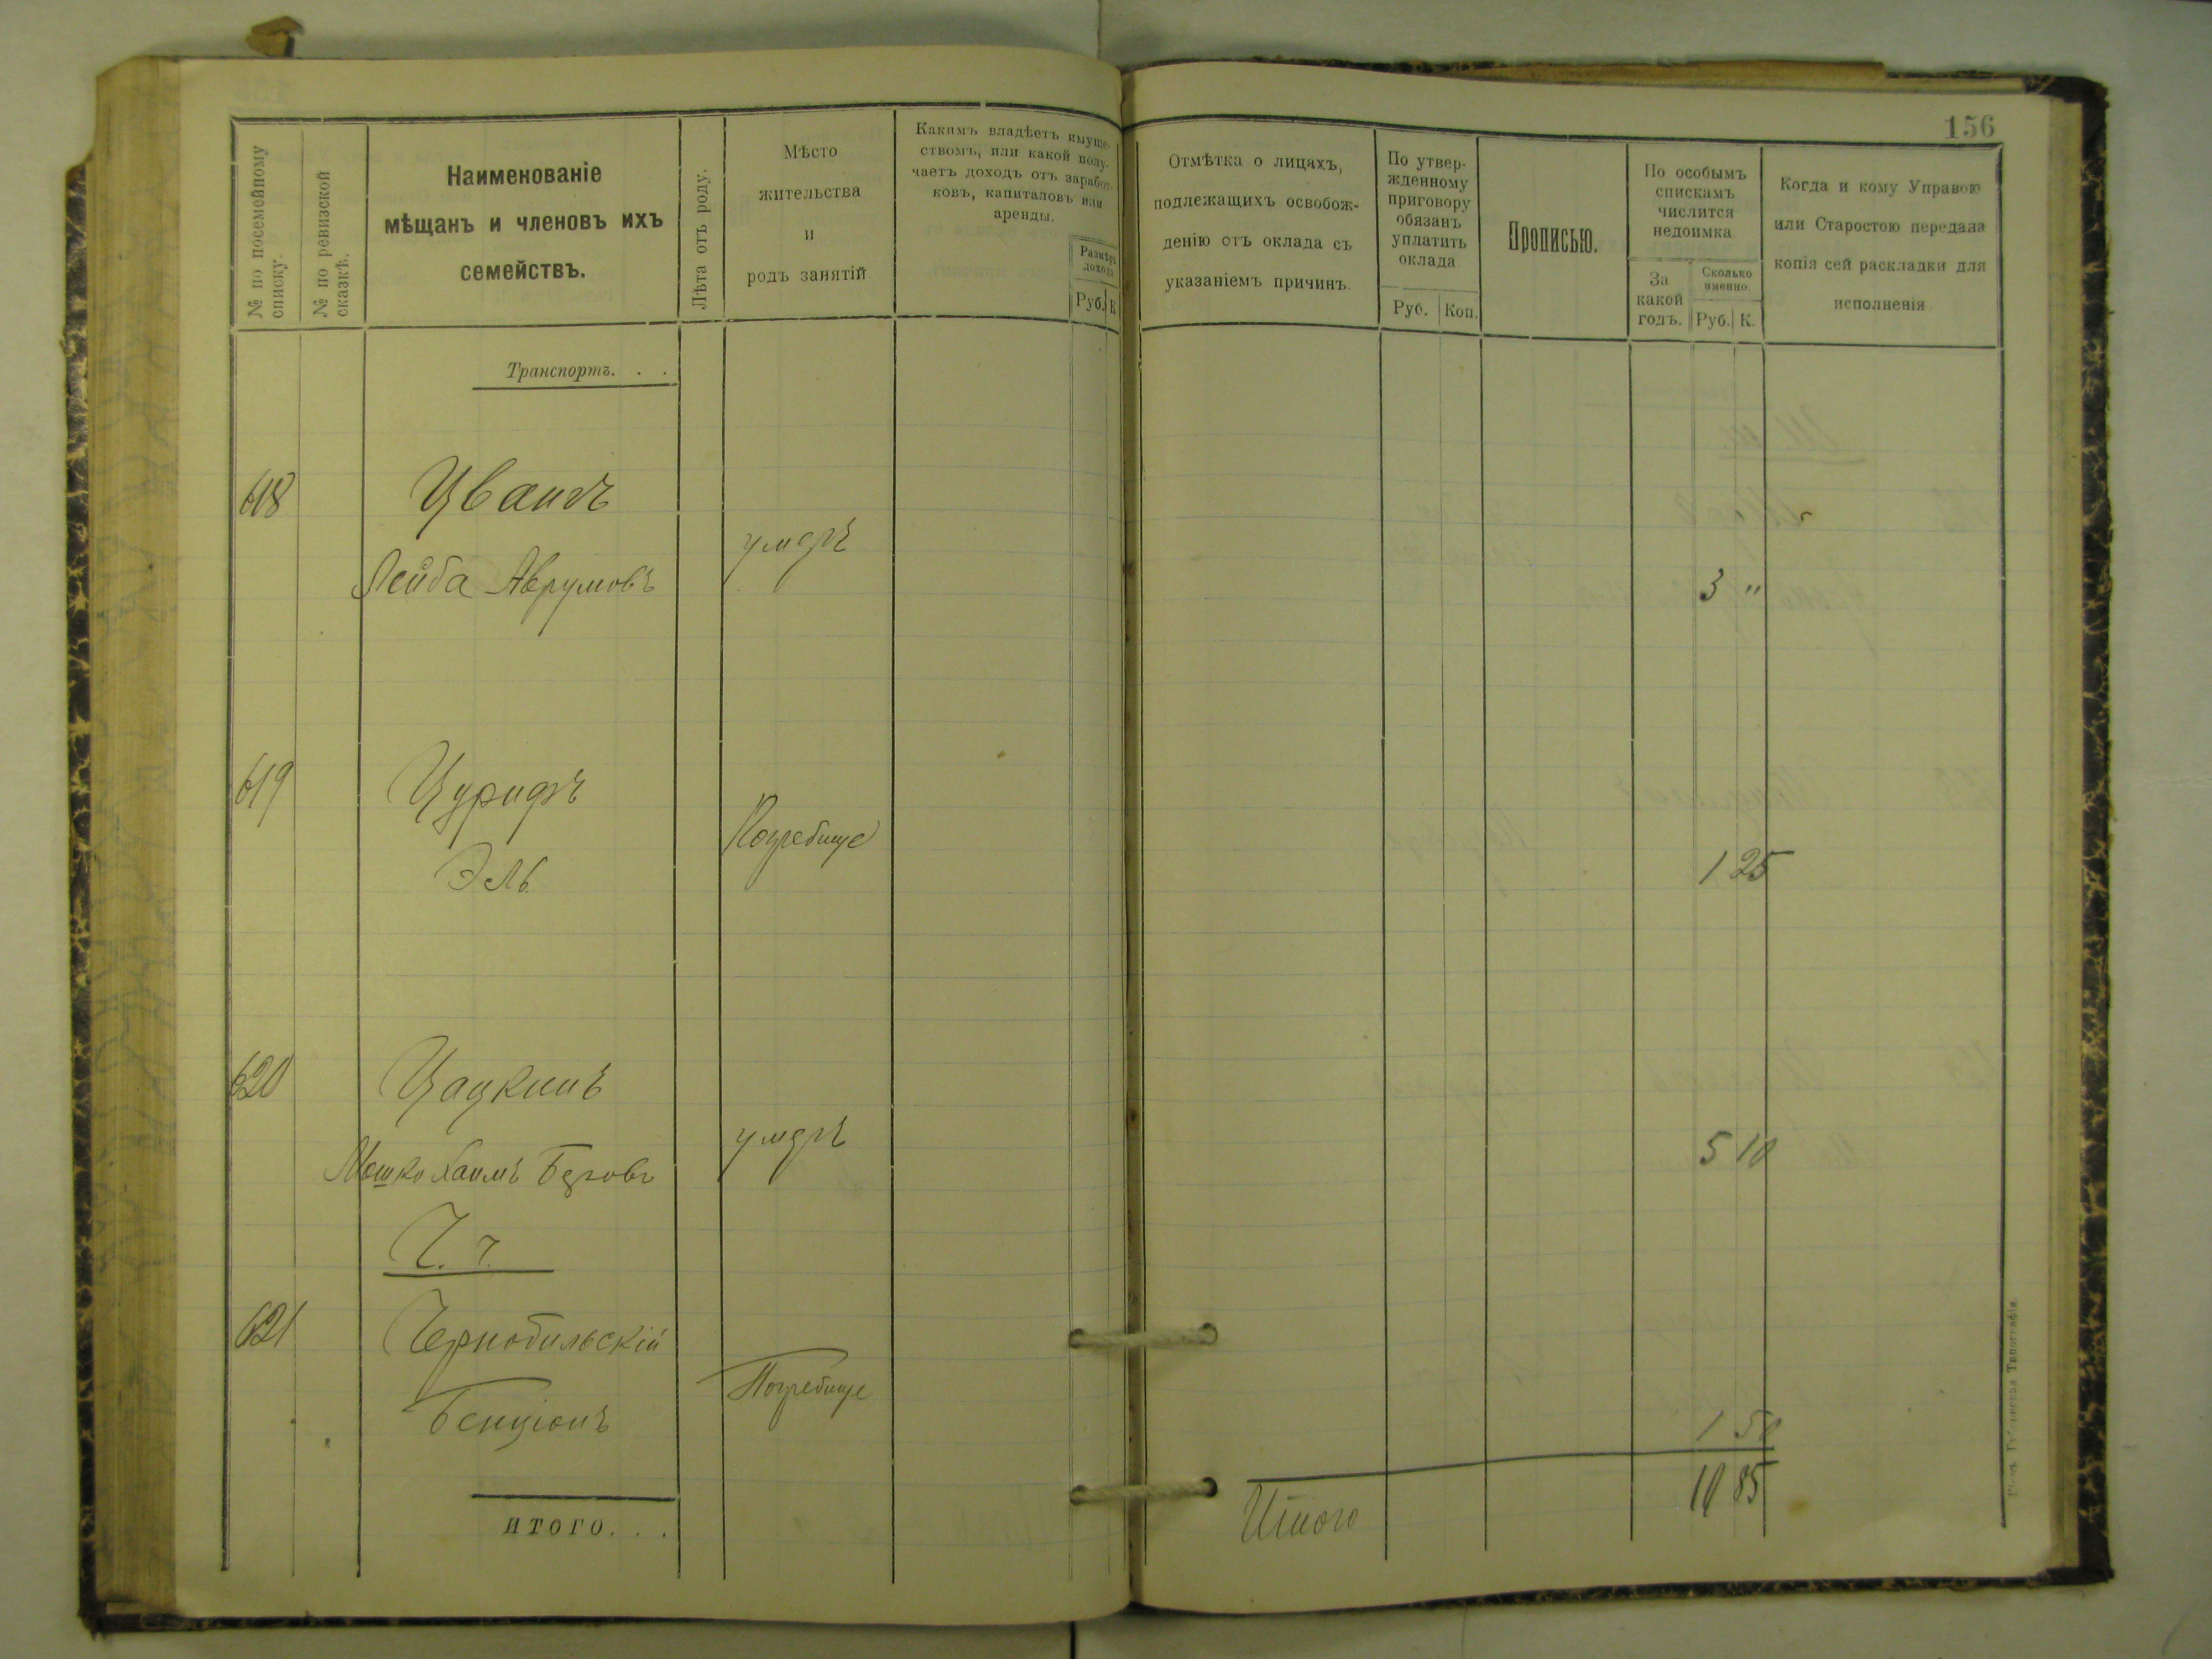 156
№ по посемейному
списку.
№ по ревизской
сказкѣ.
Наименованіе
мѣщанъ и членовъ ихъ
семействъ.
Лѣта отъ роду.
Мѣсто
жительства
и
родъ занятій
Какимъ владѣетъ имуще-
ствомъ, или какой полу-
чаетъ доходъ отъ заработ-
ковъ, капиталовъ или
аренды.
Размѣръ
дохода
Руб. К
Отмѣтка о лицахъ,
подлежащихъ освобож-
денію отъ оклада съ
указаніемъ причинъ.
По утвер-
жденному
приговору
обязанъ
уплатить
оклада
Руб. Коп.
Прописью.
По особымъ
спискамъ
числится
недоимка
За
какой
годъ.
Сколько
именно
Руб. К.
Когда и кому Управою
или Старостою передана
копія сей раскладки для
исполненія.
Транспортъ. . .
618 Цвангъ
умеръ
Лейба Аврумовъ 3 "
619 Цурифъ
Погребище
Эль 1 25
620 Цацкинъ
умеръ
Мошко Хаимъ Беровъ 5 10
Ч. ч.
621 Чернобильскій
Погребище
Бенціонъ 1 50
Итого 10 85
ИТОГО. . .